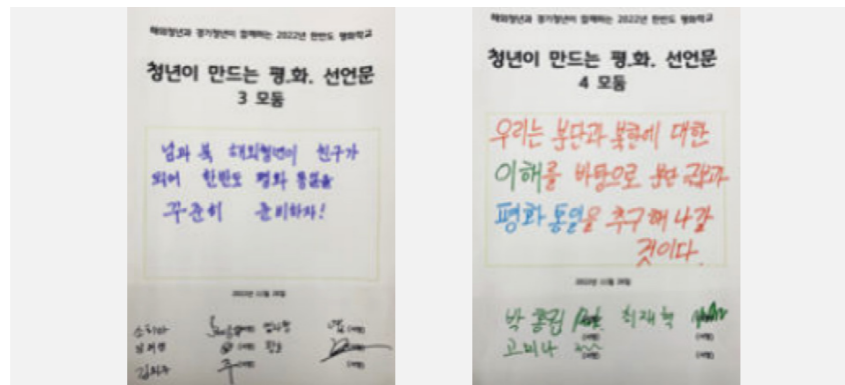 해외청년과 경기청년이 함께하는 2022년 한반도 평화학교
청년이 만드는 평.화. 선언문
3 모둠
남과 북 해외청년이 친구가
되어 한반도 평화 통일을
꾸준히 준비하자!
2022년 11월 26일
해외청년과 경기청년이 함께하는 2022년 한반도 평화학교
청년이 만드는 평.화. 선언문
4 모둠
우리는 분단과 북한에 대한
이해를 바탕으로 분단 극복과
평화통일을 추구해 나갈
것이다.
2022년 11월 26일
최재혁
고미나
(서명)